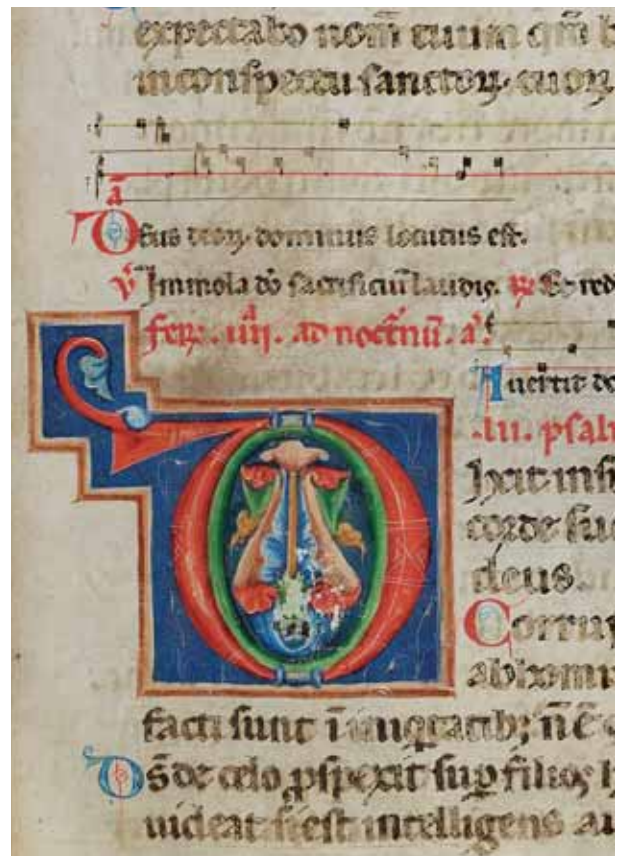 expectabo nom̄ tuum qm̄ b
inconspectu sanctoꝝ. tuoꝝ.
ā
Deus deoꝝ. dominus locutus est.
℣ Immola dō sacrificiū laudis. ℞ Et red
feꝝ. iiij. ad noct̄nū. a.
Auertit do
.lii. psal
Dixit insi
corde suo
deus.
Corrup
abhomi
facti sunt ī iniqͥtatib; nē
Ds̄ de celo ꝓspexit suꝑ filios h
uideat si est intelligens au